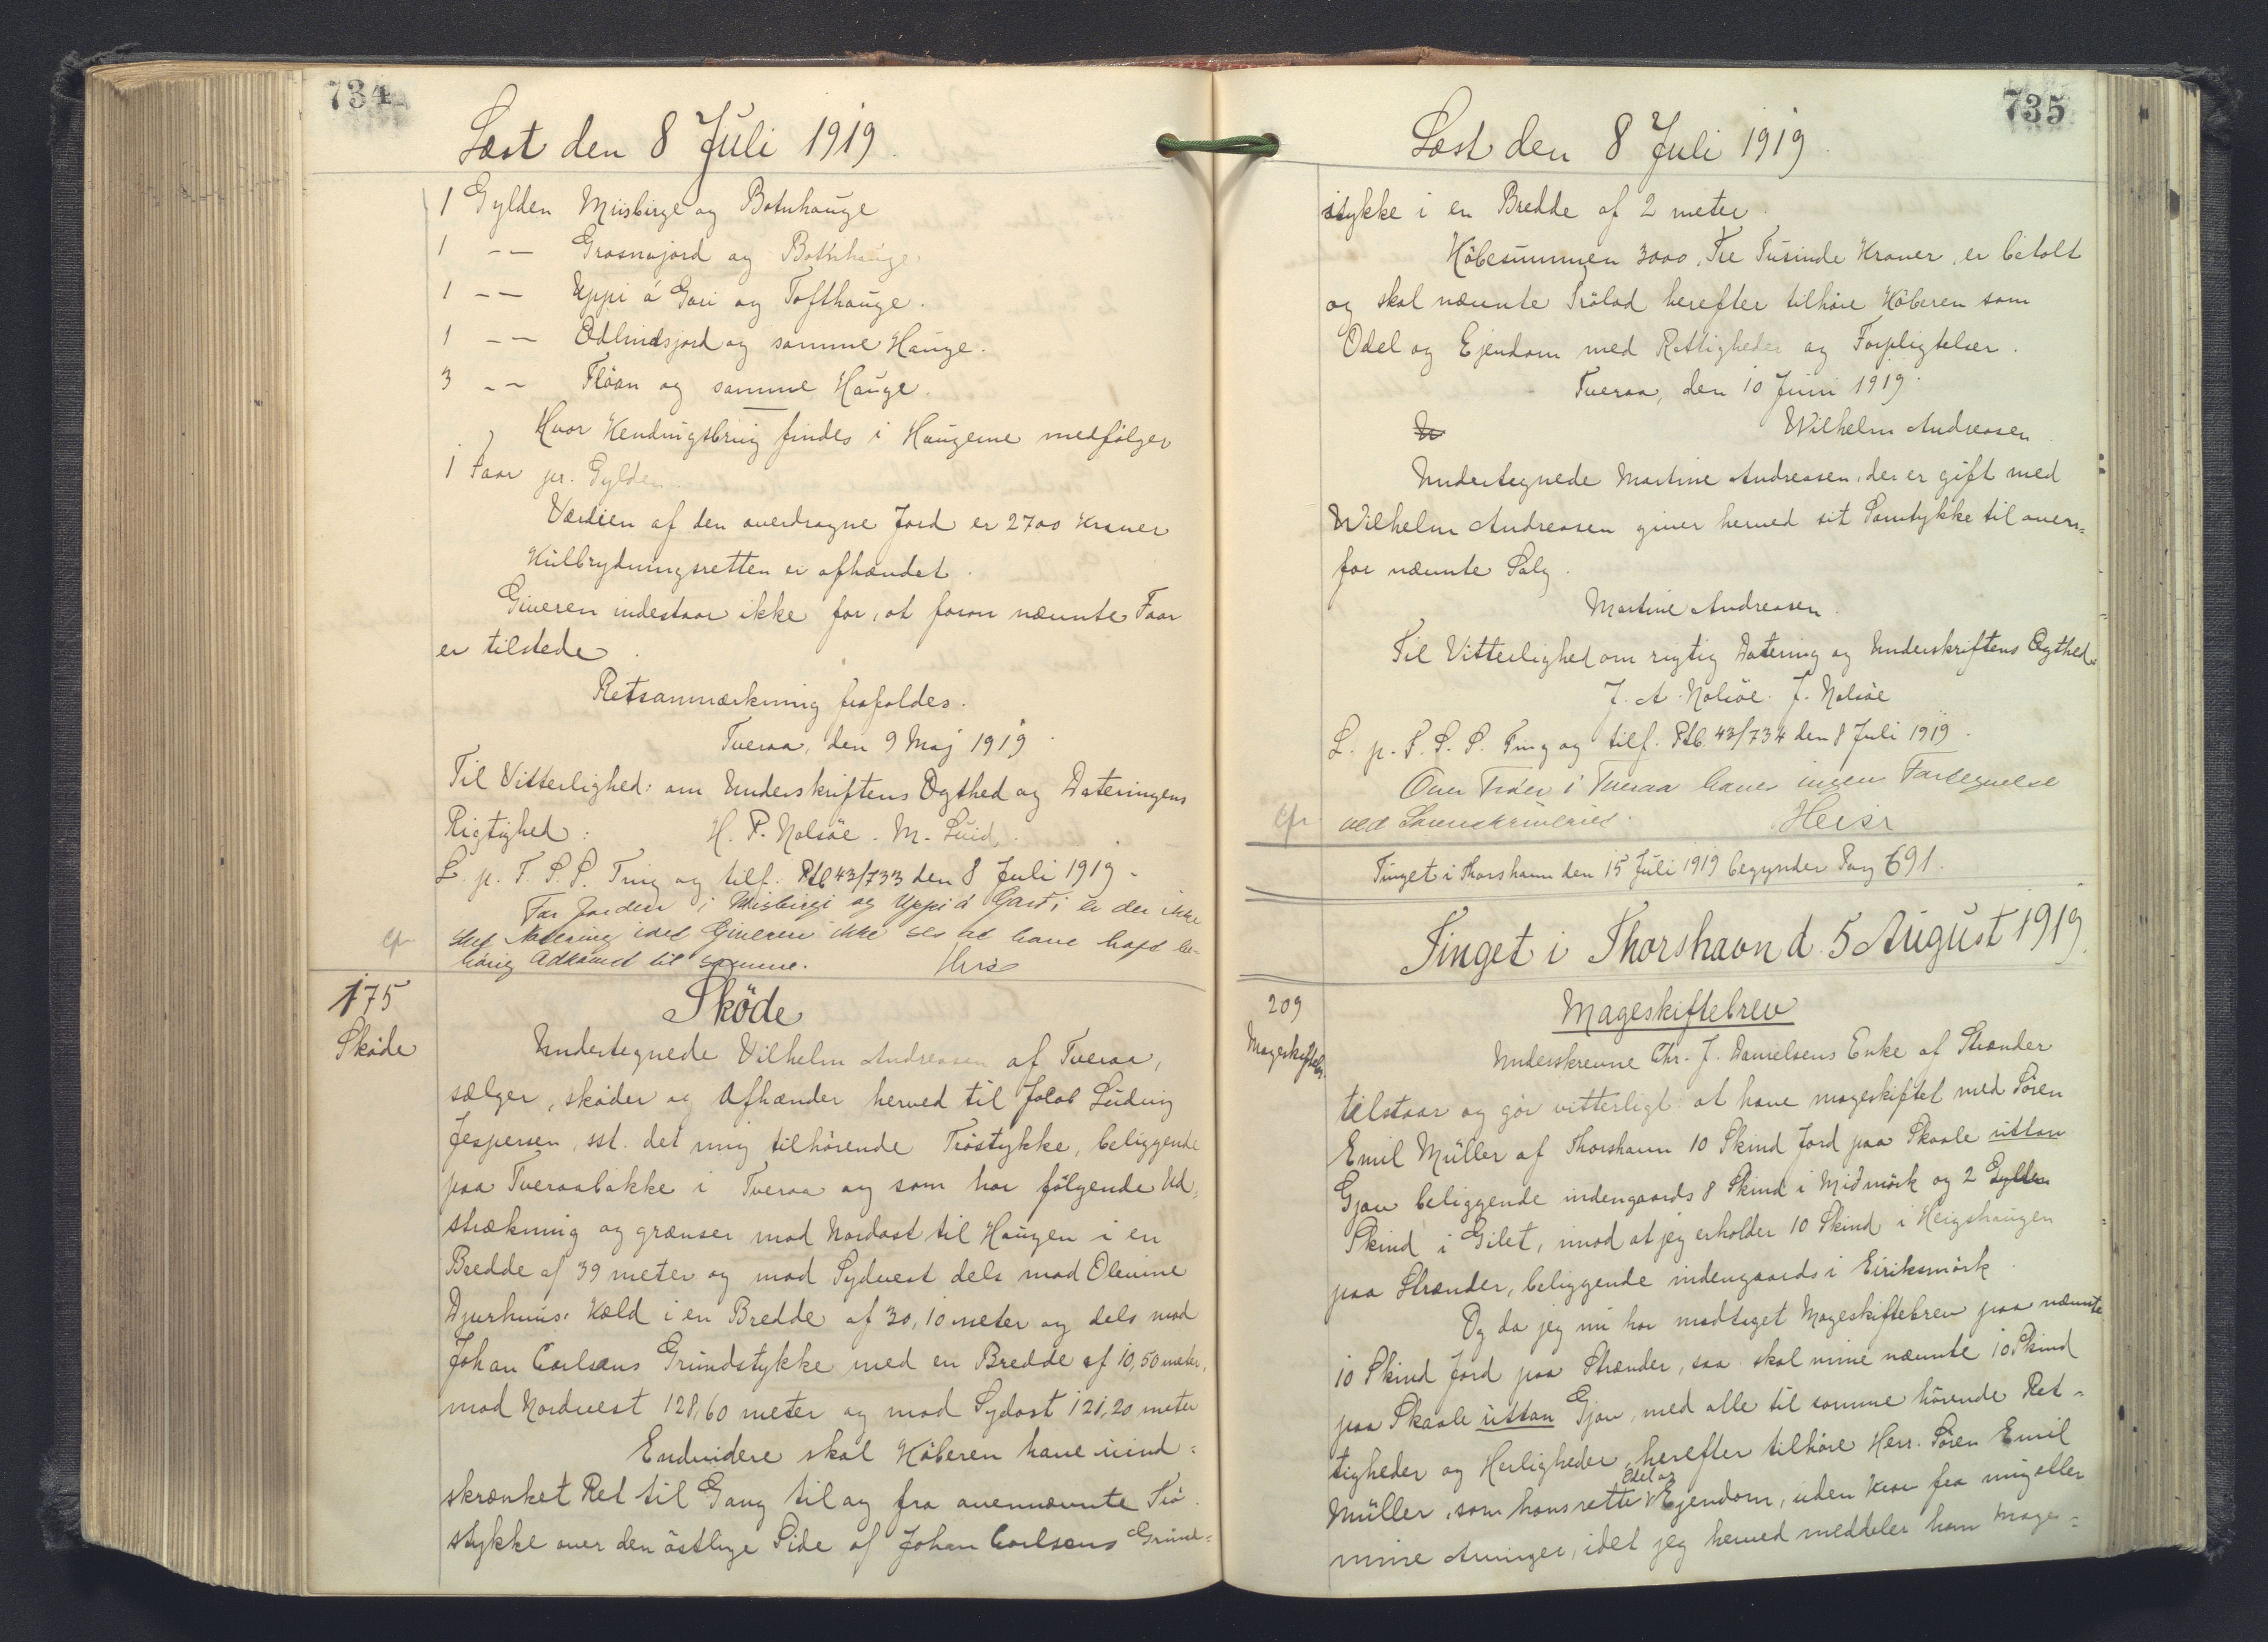 734
Læst den 8 Juli 1919.
1 Gylden Miisbirge og Botnhauge
1 -- Grasnajord og Botnhauge
1 -- Uppi á Gari og Tofthauge.
1 -- Odlindsjord og samme Hauge.
3 -- Flöan og samme Hauge.
Hvor Kendingsbrug findes i Haugerne medfølger
1 Faar pr. Gylden.
Værdien af den overdragne Jord er 2700 Kroner
Kulbrydningsretten er afhændet.
Giveren indestaar ikke for, at foran nævnte Faar
er tilstede.
Retsanmærkning frafaldes.
Tveraa, den 9 Maj 1919.
Til Vitterlighed: om Underskriftens Ægthed og Dateringens
Rigtighed: H. P. Nolsöe. M. Luid.
L. p. F. S. S. Ting og tilf. Ptb 43/733 den 8 Juli 1919.
For Jorden i Misbirgi og Uppi á Gardi er der ikke
sket Notering idet Giveren ikke ses at have haft be-
hörig Adkomst til samme.
cfr
175
Sköde
Sköde
Undertegnede Vilhelm Andreasen af Tveraa,
sælger, sköder og afhænder herved til Jacob Ludvig
Jespersen, sst. det mig tilhörende Tröstykke, beliggende
paa Tveraabakke i Tveraa og som har følgende Ud-
strækning og grænser mod Nordost til Haugen i en
Bredde af 39 meter og mod Sydvest dels mod Olevine
Djurhuus: Kæld i en Bredde af 30,10 meter og dels mod
Johan Carlsens Grundstykke med en Bredde af 10,50 meter,
mod Nordvest 128,60 meter og mod Sydost 121,20 meter
Endvidere skal Köberen have uind=
skrænket Ret til Gang til og fra ovennævnte Trö
stykke over den östlige Side af Johan Carlsens Grund=
735
Læst den 8 Juli 1919.
stykke i en Bredde af 2 meter.
Köbesummen 3000, Tre Tusinde Kroner, er betalt
og skal nævnte Trölod herefter tilhöre Köberen som
Odel og Ejendom med Rettigheder og Forpligtelser.
Tveraa, den 10 Juni 1919.
Wilhelm Andreasen
Undertegnede Martine Andreasen, der er gift med
Wilhelm Andreasen giver herved sit Samtykke til oven=
for nævnte Salg.
Martine Andreasen.
Til Vitterlighed om rigtig Datering og Underskriftens Ægthed.
J. A. Nolsöe. J. Nolsöe
L. p. F. S. S. Ting og tilf. Ptb. 43/734 den 8 Juli 1919.
Over Tröer i Tveraa haves ingen Fortegnelse
cfr ved Sorenskriveriet.
Tinget i Thorshavn den 15 Juli 1919 begynder Pag 691.
Tinget i Thorshavn d. 5 August 1919.
209
Mageskiftebr.
Mageskiftebrev
Underskrevne Chr. J. Danielsens Enke af Strænder
tilstaar og gör vitterligt: at have mageskiftet med Sören
Emil Müller af Thorshavn 10 Skind Jord paa Skaale uttan
Gjov beliggende indengaards 8 Skind i Miðmörk og 2 Gylden
Skind i Gilet, imod at jeg erholder 10 Skind i Heigshaugen
paa Strænder, beliggende indengaards i Eiriksmörk.
Og da jeg nu har modtaget Mageskiftebrev paa nævnte
10 Skind Jord paa Strænder, saa skal mine nævnte 10 Skind
paa Skaale uttan Gjov, med alle til samme hörende Ret-
tigheder og Herligheder, herefter tilhöre Herr. Sören Emil
Müller, som hans rette Odel og Ejendom, uden Krav fra mig eller
mine Arvinger, idet jeg herved meddeler ham Mage=